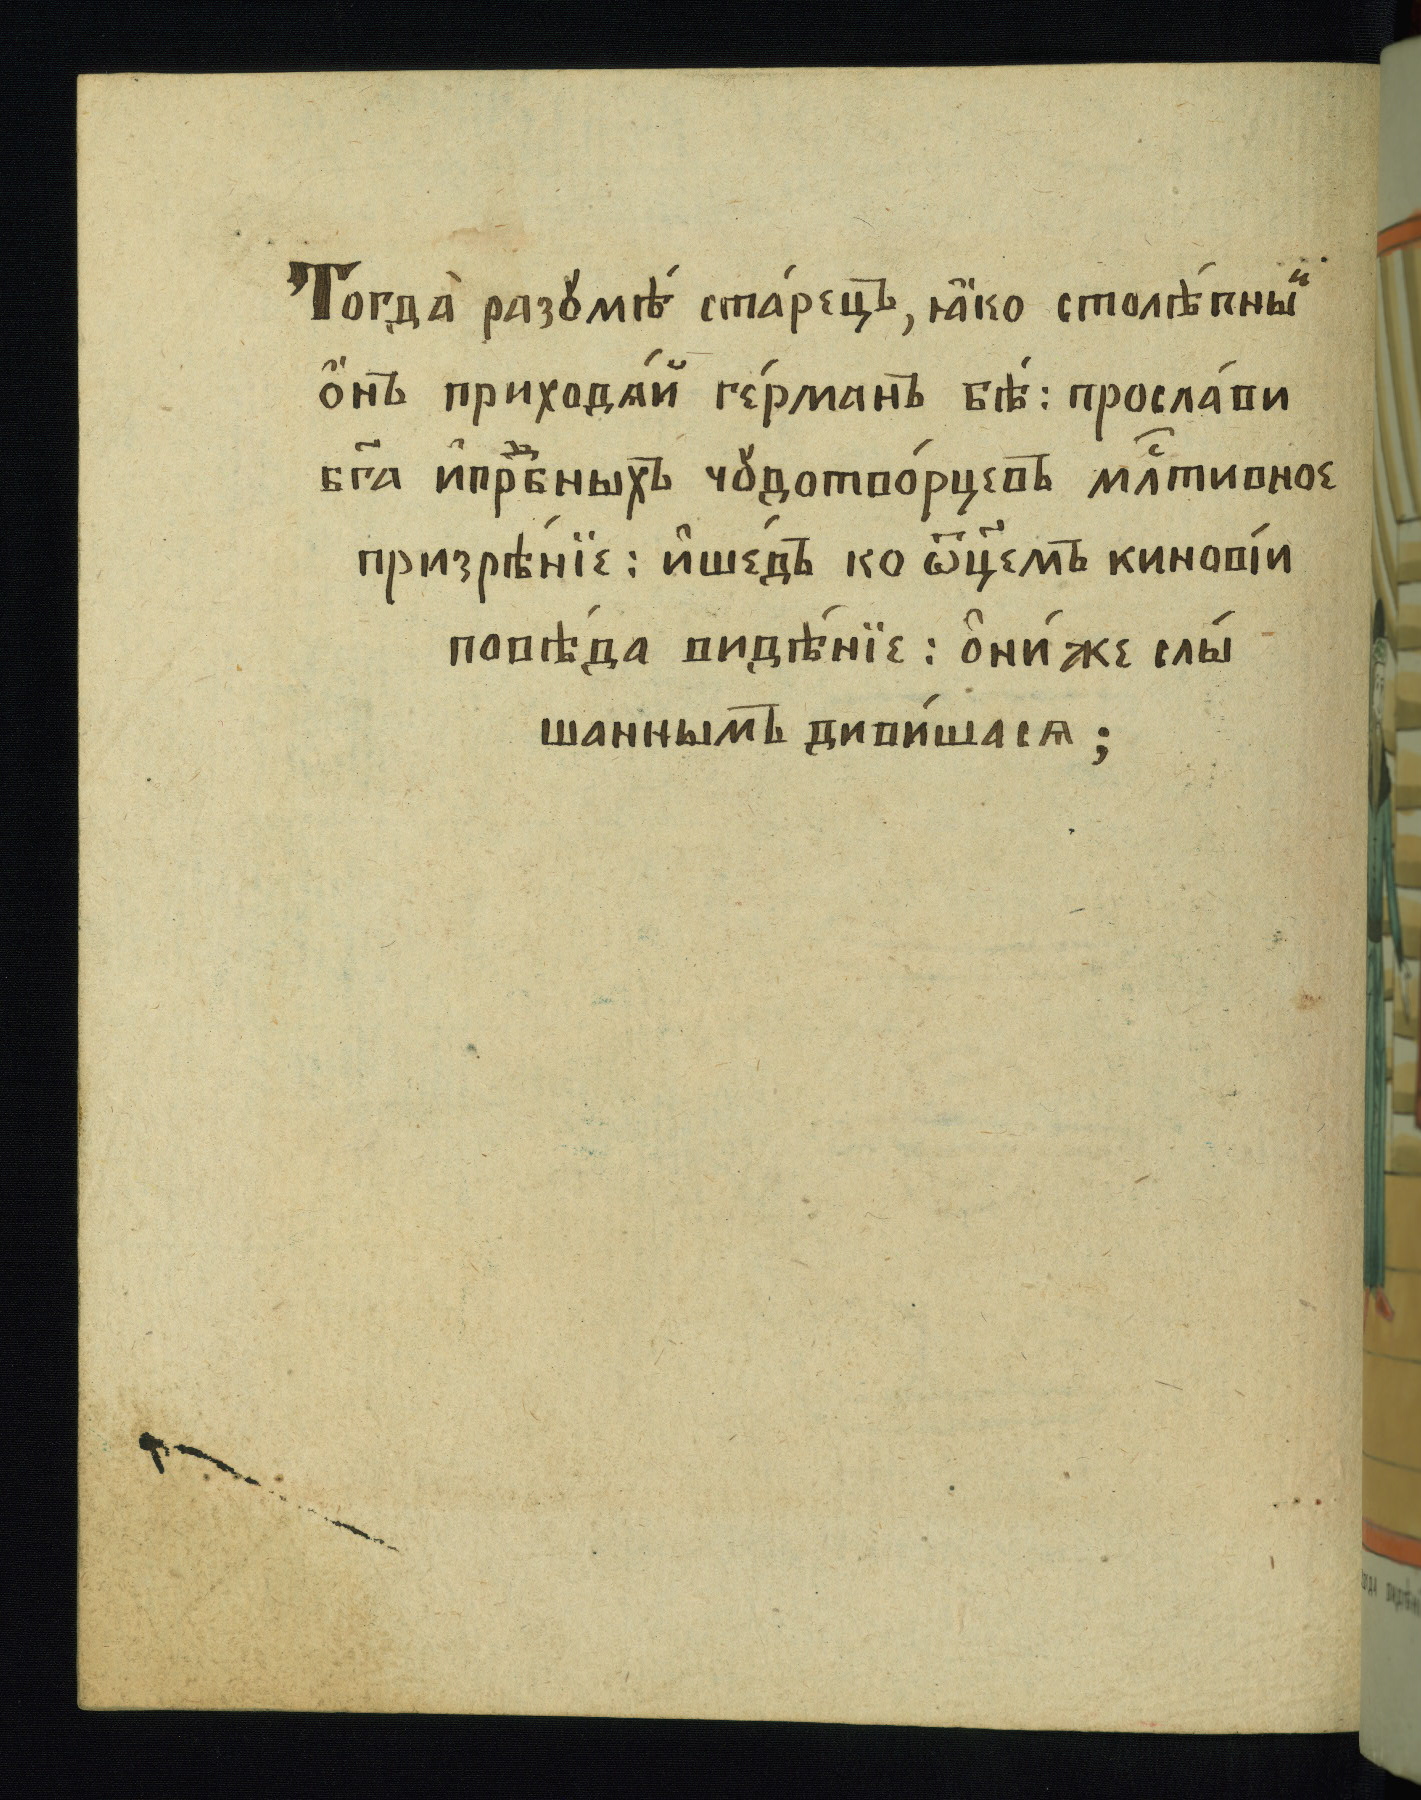 Тогда̀ разꙋмѣ́ ста́рецъ, ꙗ҆́ко столѣ́пныи
ѻ҆́нъ приходѧ́й ге́рманъ бѣ́: просла́ви
бг҃а и҆прпⷣбныхъ чꙋдотво́рцевъ млⷭ҇тивное
призрѣ́нїе: и҆ше́дъ ко ѡ҆ц҃емъ кинові́и
повѣ́да видѣ́нїе: ѻ҆ни́же слы́
шаннымъ диви́шасѧ;